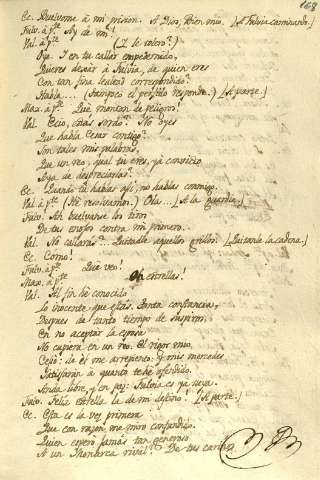 168
Ec. Vuelvome á mi prision. A Dios, Bien mio. [A Fulvia caminando.]
Fulv. á pte. Ay de mi!
Val. á pte. (I le veteré?)
Oye. I en tu callar empedernido,
Quieres dexar á Fulvia, de quien eres
Con tan fina lealtad correspondido?
Habla... (Tampoco el pérfido responde.) [A parte.]
Max. á pte. Qué monton de peligros!
Val. Ecio, estás sordo? No oyes
Que habla Cesar contigo?
Son tales mis palabras,
Que un reo, qual tu eres, ya convicto
Haya de despreciarlas?
Ec. Quando tú hablas asi, no hablas conmigo.
Val. á pte. (Ea, resolvamos.) Ola... [A la guardia.]
Fulv. Ah vuelvanse los tiros
De tus enojos contra mi primero.
Val. No callarás?.. Quitadle aquellos grillos. [Quitanle la cadena.]
Ec. Como!
Fulv. á pte. Qué veo!
Max. á pte. Oh estrellas!
Val. Al fin he conocido
Lo inocente que estás. Tanta constancia,
Despues de tanto tiempo de suspiros,
En no aceptar la esposa
No cupiera en un reo. El rigor mio,
Ecio, da él me arrepiento. Y mis mercedes
Satisfarán á quanto te he ofendido.
Anda libre, y en paz: Fulvia es ya tuya.
Fulv. Feliz estrella la de mi destino! [A parte.]
Ec. Esta es la vez primera
Que con razon me miro confundido.
Quien esperó jamás tan generoso
A un Monarca rival? De tus cariños